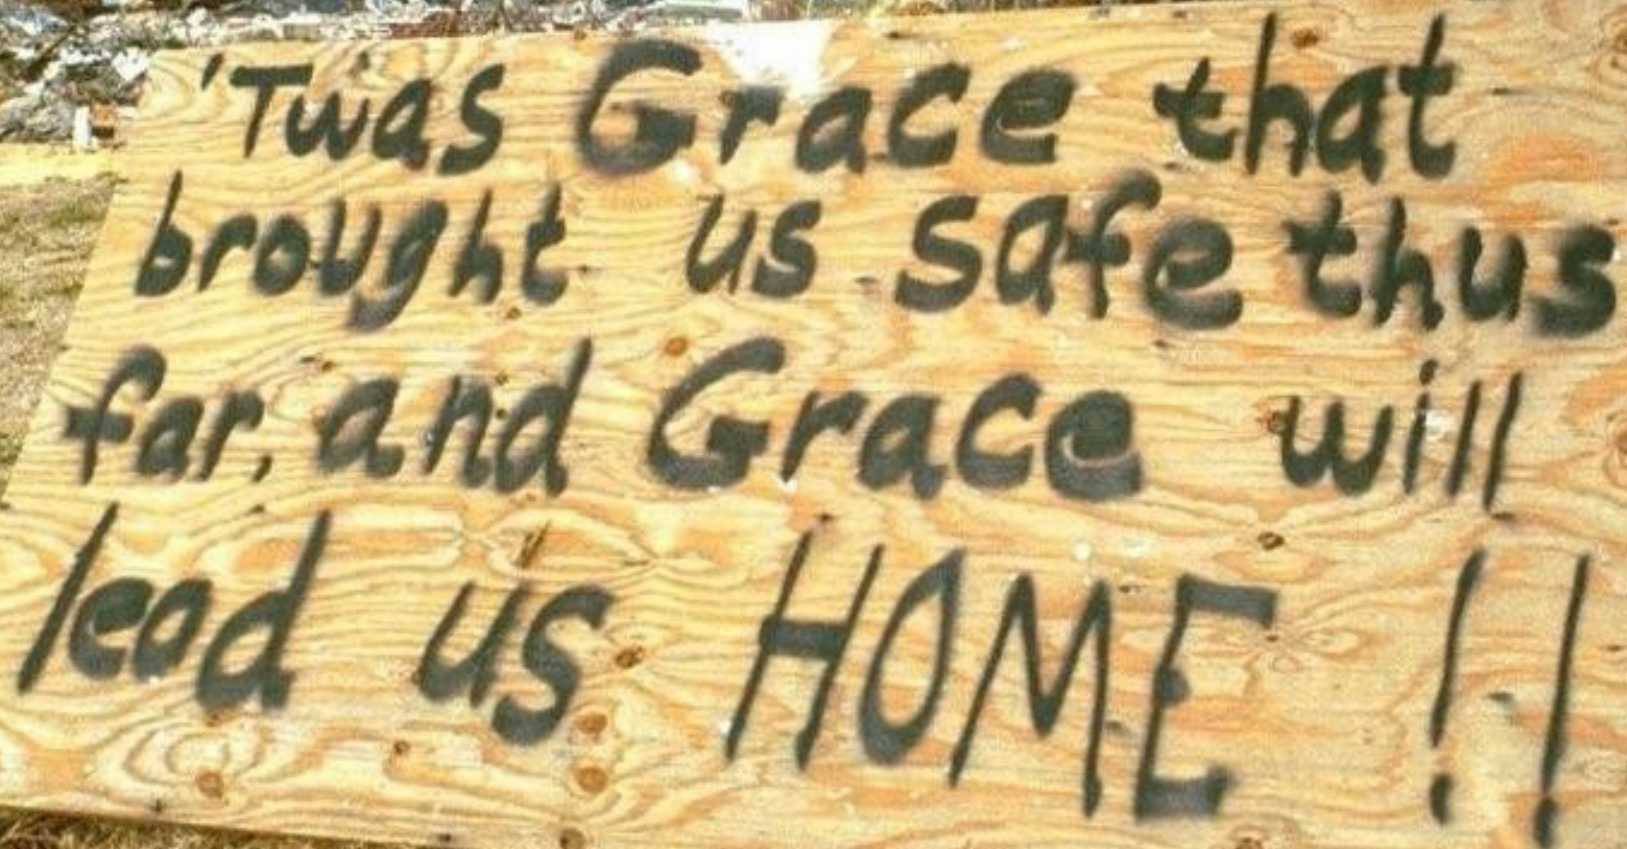 'Twas Grace that
brought us safe thus
far, and Grace will
lead us HOME !!